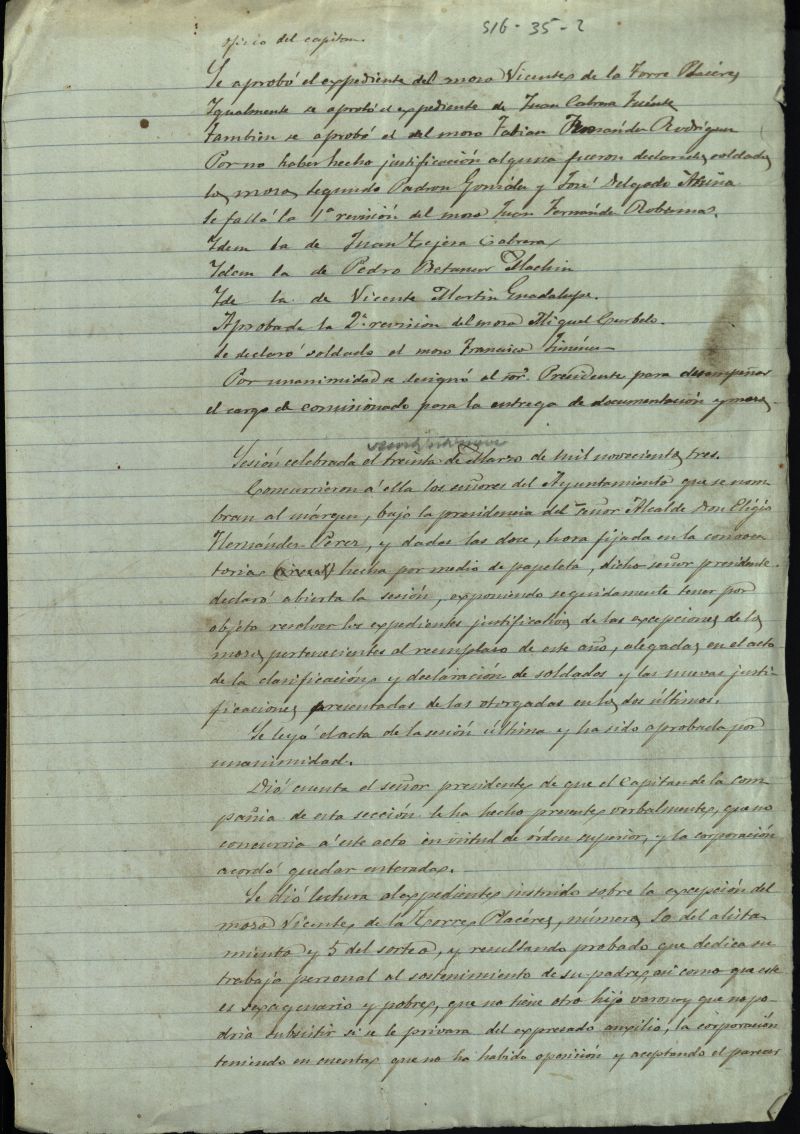 516-35-2
oficio del capitan.
Se aprobó el expediente del mozo Vicente de la Torre Placéres
Igualmente se aprobó el expediente de Juan Cabrera
tambien se aprobó el del mozo Fabian Fernández Rodríguez
Por no haber hecho justificación alguna fueron declarados soldados
los mozos Segundo Padron González y José Delgado
Se falló la 1ª revisión del mozo Juan Fernández
Idem la de Juan Tejera Cabrera
Idem la de Pedro Betancor Machin
Id la de Vicente Martin Guadalupe.
Aprobada la 2ª revisión del mozo Miguel Curbelo.
Se declaró soldado el mozo Francisco Jiménez
Por unanimidad se designó el Sor. Presidente para desempeñar
el cargo de comisionado para la entrega de documentación y mozos
Sesión celebrada el treinta de Marzo de mil novecientos tres.
Concurrieron á ella los señores del Ayuntamiento que se nom-
bran al márgen, bajo la presidencia del señor Alcalde Don Eligio
Hernández Perez, y dadas las doce, hora fijada en la convoca
toria hecha por medio de papeleta, dicho señor presidente
declaró abierta la sesión, exponiendo seguidamente tener por
objeto resolver los expedientes justificativos de las excepciones de los
mozos pertenecientes al reemplazo de este año, alegadas en el acto
de la clasificación y declaración de soldados y las nuevas justi-
ficaciones presentadas de las otorgadas en los dos últimos.
Se leyó el acta de la sesión última y ha sido aprobada por
unanimidad.
Dió cuenta el señor presidente de que el Capitan de la com-
pañia de esta sección le ha hecho presente verbalmente, que no
concurria á este acto en virtud de órden superior, y la corporación
acordó quedar enterada.
Se dió lectura al expediente instruido sobre la excepción del
mozo Vicente de la Torre Placéres, número 10 del alista
miento y 5 del sorteo, y resultando probado que dedica su
trabajo personal al sostenimiento de su padre, asi como que este
es sexagenario y pobre, que no tiene otro hijo varon y que no po-
dria subsistir si se le privara del expresado auxilio, la corporación
teniendo en cuenta que no ha habido oposición y aceptando el parecer